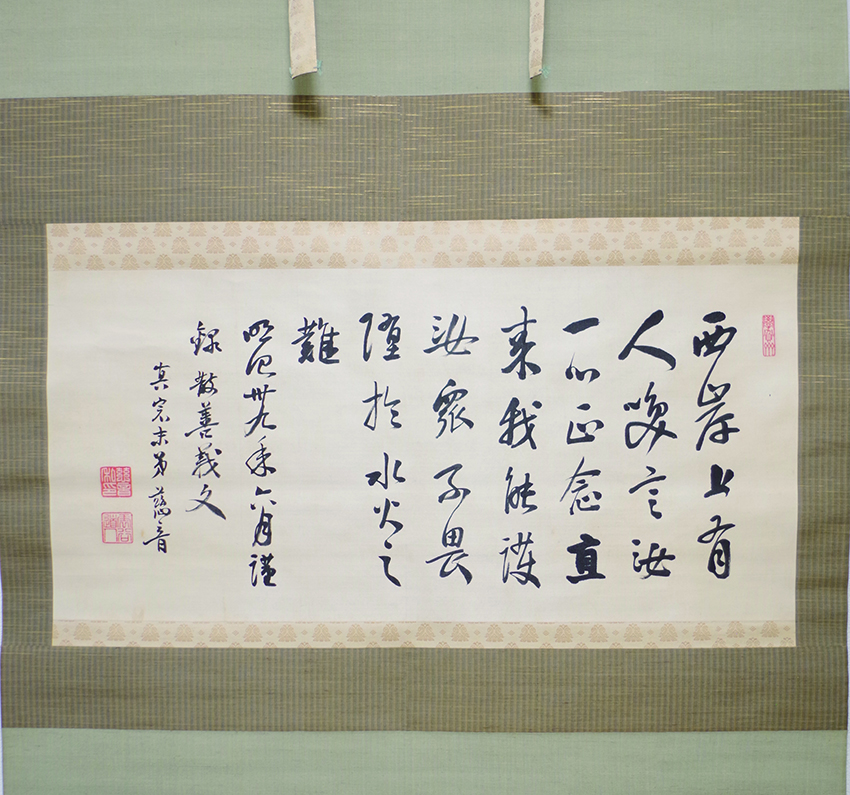 西岸上有
人喚言汝
一心正念直
来我能護
汝衆不畏
堕於水火之
難
明治卅九年六月謹
録散善義文
真宗末弟慈音